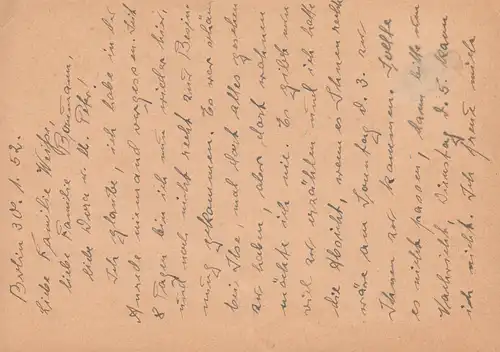 Berlin 30.1.52.
Liebe Familie Weißs,
liebe Familie Baumann,
liebe Dora u. Peter!
Ich glaube, ich habe in der
Stunde niemand vergessen. Seit
8 Tagen bin ich nun wieder hier,
und noch nicht recht zur Besin-
nung gekommen. Es war schön
bei Ilse, mal dort alles gesehen
zu haben, aber dort wohnen
möchte ich nie. Es gibt nun
viel zu erzählen und ich hatte
die Absicht, wenn es Ihnen recht
wäre am Sonntag d. 3. zu
Ihnen zu kommen. Sollte
es nicht passen, dann bitte um
Nachricht. Dienstag d. 5. kann
ich nicht. Ich freue mich